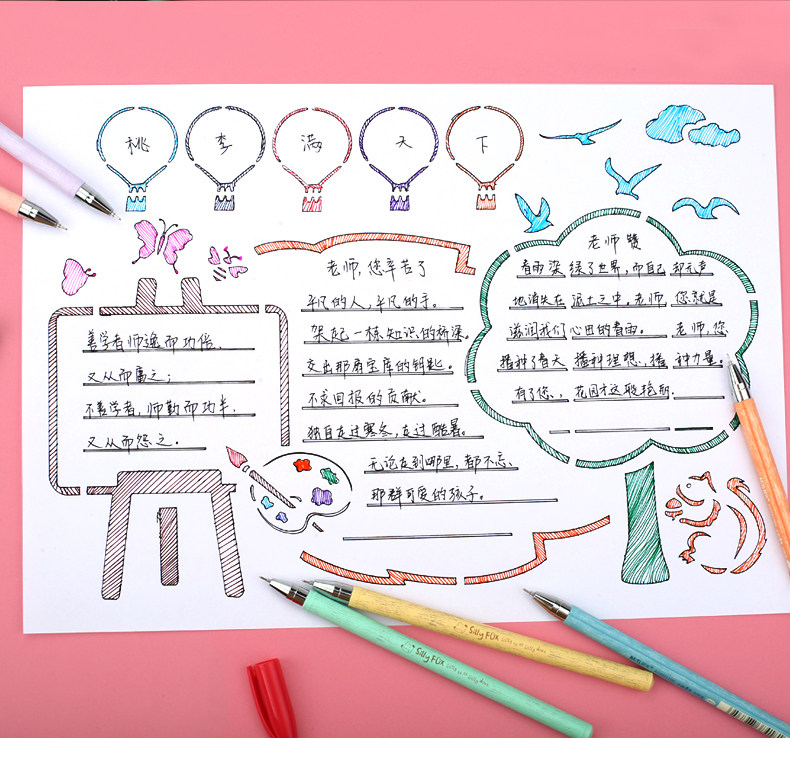 桃 李 满 天 下
善学者师逸而功倍,
又从而庸之;
不善学者,师勤而功半,
又从而怨之。
老师,您辛苦了
平凡的人,平凡的手。
架起一栋知识的桥梁。
交出那扇宝库的钥匙。
不求回报的贡献。
独自走过寒冬,走过酷暑。
无论走到哪里,都不忘,
那群可爱的孩子。
老师赞
春雨染绿了世界,而自己却无声
地消失在泥土之中。老师,您就是
滋润我们心田的春雨。老师,您
播种了春天 播种理想,播种力量。
有了您,花园才这般艳丽.
Silly FOX
Silly FOX